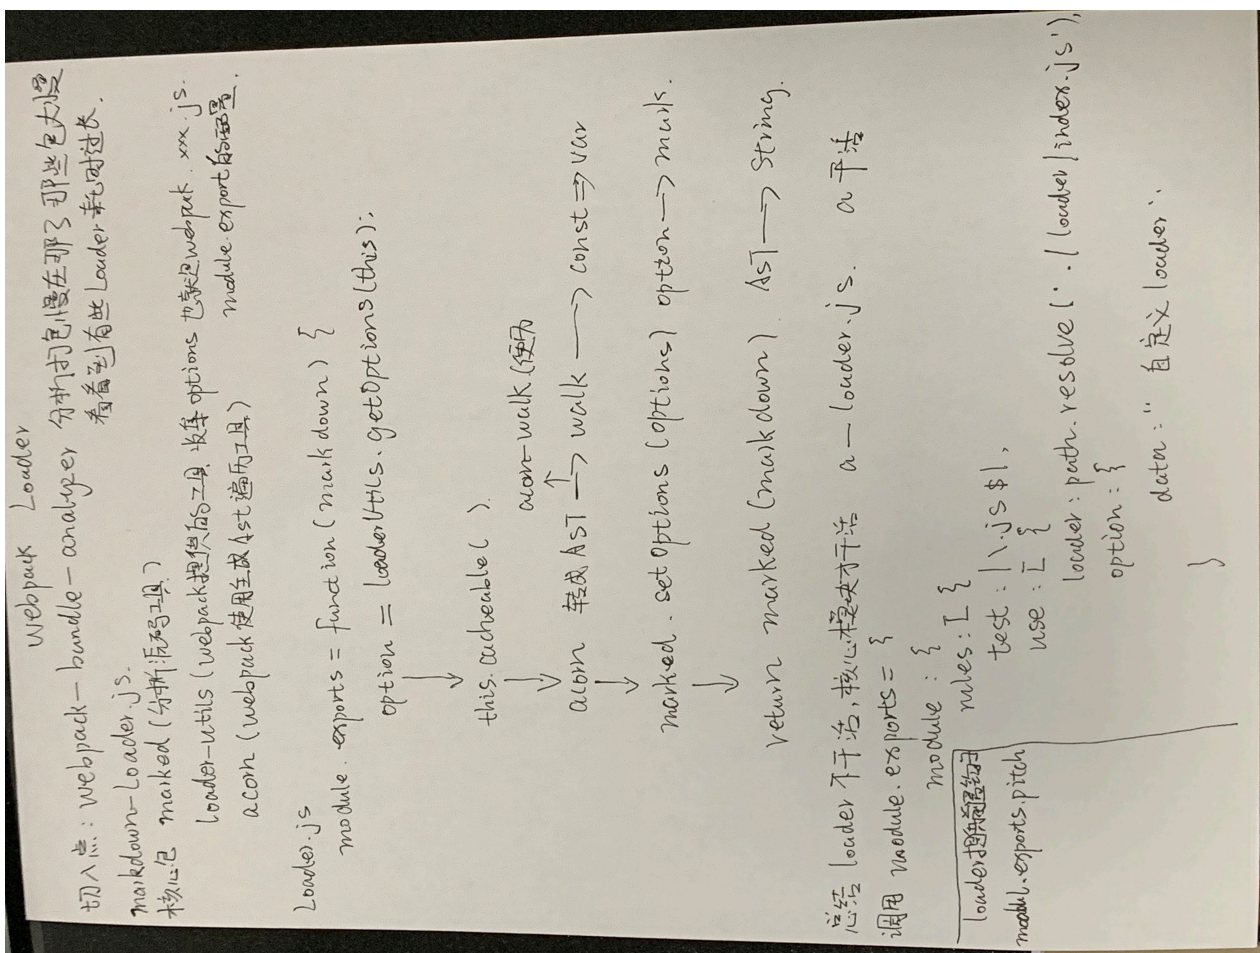 webpack Loader
切入点: webpack-bundle-analyzer 分析打包慢在那了 那些包大慢
看看到有些Loader耗时过长.
markdown-Loader.js.
核心包 marked (分析源码工具)
loader-utils (webpack提供的工具 收集options 也就是webpack.xxx.js.
module.export的配置.
acorn (webpack使用生成Ast遍历工具)
Loader.js
module.exports = function (markdown) {
option = loaderUtils.getOptions(this);
↓
this.cacheable( ).
↓ acorn-walk (便历
acorn 转成 AST —> walk —> const => var
↓
marked.setOptions(options) option —> mark.
↓
return marked(markdown) AST —> String.
总结 loader 不干活, 核心模块干活 a-loader.js. a 干活
调用 module.exports = {
module: {
rules: [ {
test: /\.js$/,
use: [ {
loader: path.resolve('./loader/index.js'),
option: {
data: "自定义loader"
}
loader
module.exports.pitch